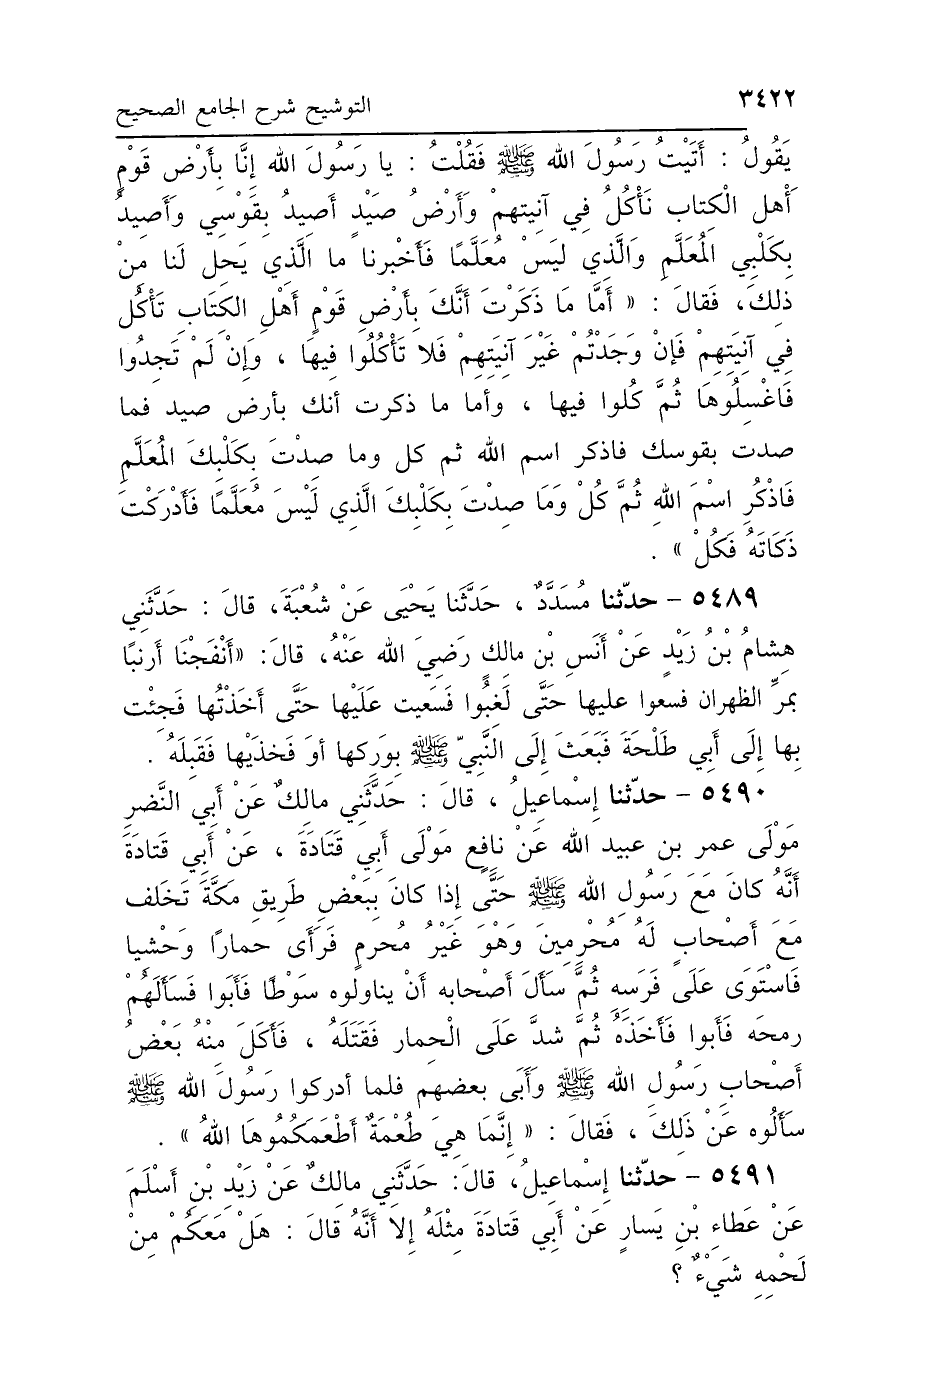 ٣٤٢٢
التوشيح شرح الجامع الصحيح
يَقُولُ : أَتَيْتُ رَسُولَ الله ﷺ فَقُلْتُ : يا رَسُولَ الله إنَّا بِأَرْضِ قَوْمٍ
أَهْل الْكِتاب نَأْكُلُ فِي آنِيتهمْ وَأَرْضُ صَيْدٍ أصِيدُ بِقَوْسِي وأَصِيدُ
بِكَلْبِي الْمُعَلَّم وَالَّذِي لَيَسْ مُعَلَّمًا فَأَخْبرنا ما الَّذِي يَحِل لَنا مِنْ
ذلِكَ، فَقالَ : « أَمَّا مَا ذَكَرْتَ أَنَّكَ بِأَرْضِ قَوْمٍ أَهْلِ الكِتَابِ تَأْكُل
فِي آنِيَتِهِمْ فَإنْ وَجَدْتُمْ غَيْرَ آنِيَتِهِمْ فَلا تَأْكُلُوا فِيهَا ، وَإِنْ لَمْ تَجِدُوا
فَاغْسِلُوهَا ثُمَّ كُلوا فيها ، وأما ما ذكرت أنك بأرض صيد فما
صدت بقوسك فاذكر اسم الله ثم كل وما صِدْتَ بِكَلْبِكَ الْمُعَلَّمِ
فَاذْكُرِ اسْمَ اللهِ ثُمَّ كُلْ وَمَا صِدْتَ بِكَلْبِكَ الَّذِي لَيْسَ مُعَلَّمًا فَأَدْرَكْتَ
ذَكَاتَهُ فَكُلْ » .
٥٤٨٩ – حدّثنا مُسَدَّدٌ ، حَدَّثَنا يَحْيَى عَنْ شُعْبَةَ، قالَ : حَدَّثَنِي
هِشامُ بْنُ زَيْدٍ عَنْ أَنَسِ بْنِ مالكٍ رَضِيَ الله عَنْهُ، قالَ: «أَنْفَجْنَا أرنبًا
بمَرِّ الظهران فسعوا عليها حَتَّى لَغِبُوا فَسَعيت عَلَيْها حَتَّى أَخَذْتُها فَجِئْت
بِها إِلَى أَبِي طَلْحَةَ فَبَعَثَ إِلَى النَّبِيّ ﷺ بِوَرِكها أوَ فَخذَيْها فَقَبلَهُ .
٥٤٩٠ – حدّثنا إسْماعِيلُ ، قالَ : حَدَّثَنِي مالكٌ عَنْ أَبِي النَّضرِ
مَوْلَى عمر بن عبيد الله عَنْ نافِعٍ مَوْلَى أَبِي قَتَادَةَ ، عَنْ أَبِي قَتادَةَ
أَنَّهُ كانَ مَعَ رَسُولِ الله ﷺ حَتَّى إذا كانَ بِبَعْضِ طَرِيق مَكَّةَ تَخَلف
مَعَ أَصْحابٍ لَهُ مُحْرِمِينَ وَهْوَ غَيْرُ مُحرمٍ فَرَأى حمارًا وَحْشيا
فَاسْتَوَى عَلَى فَرَسِهِ ثُمَّ سَأَلَ أصْحابه أنْ يناولوه سَوْطًا فَأَبوا فَسَأَلَهُمْ
رمحَه فَأَبوا فَأَخَذَهُ ثُمَّ شدَّ عَلَى الْحمار فَقَتَلَهُ ، فَأَكَلَ مِنْهُ بَعْضُ
أصْحاب رَسُولِ الله ﷺ وأَبَى بعضهم فلما أدركوا رَسُولَ الله ﷺ
سَأَلُوه عَنْ ذَلِكَ ، فَقالَ : « إِنَّمَا هِيَ طُعْمَةٌ أَطْعَمَكُمُوهَا اللهُ » .
٥٤٩١ – حدّثنا إسْماعِيلُ، قالَ: حَدَّثَنِي مالكٌ عَنْ زَيْدِ بْنِ أَسْلَمَ
عَنْ عَطاءِ بْنِ يَسارٍ عَنْ أَبِي قَتَادَةَ مِثْلَهُ إلا أَنَّهُ قالَ : هَلْ مَعَكُمْ مِنْ
لَحْمِهِ شَيْءٌ ؟